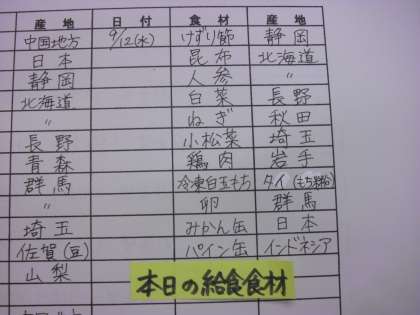 産地 日付 食材 産地
中国地方 9/12(水) けずり節 静岡
日本 昆布 北海道
静岡 人参 〃
北海道 白菜 長野
ねぎ 秋田
長野 小松菜 埼玉
青森 鶏肉 岩手
群馬 冷凍白玉もち タイ(もち粉)
〃 卵 群馬
埼玉 みかん缶 日本
佐賀(豆) パイン缶 インドネシア
山梨
本日の給食食材